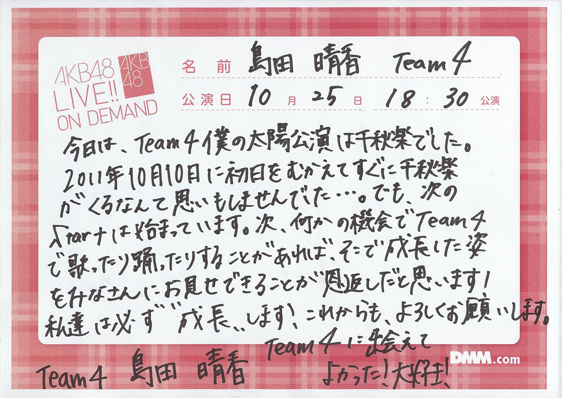 AKB48
LIVE!!
ON DEMAND
AKB
48
名前 島田 晴香 Team4
公演日 10月25日 18:30公演
今日は、Team4僕の太陽公演は千秋楽でした。
2011年10月10日に初日をむかえてすぐに千秋楽
がくるなんて思いもしませんでした…。でも、次の
Startは始まっています。次、何かの機会でTeam4
で歌ったり踊ったりすることがあれば、そこで成長した姿
をみなさんにお見せできることが恩返しだと思います!
私達は必ず"成長"します!これからも、よろしくお願いします。
Team4に出会えて
よかった!大好き!
Team4 島田 晴香
DMM.com